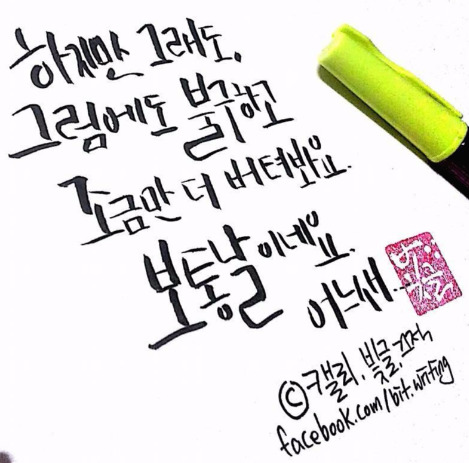 하지만 그래도,
그럼에도 불구하고
조금만 더 버텨봐요.
보통날이네요.
어느새..
ⓒ캘리, 빛글,끄적
facebook.com/bit.writing